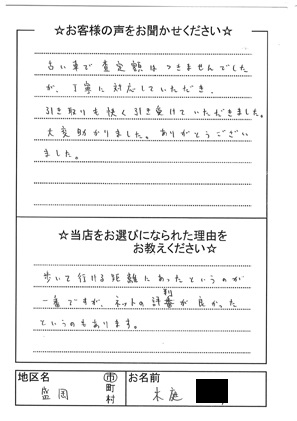 ☆お客様の声をお聞かせください☆
古い車で査定額はつきませんでした
が、丁寧に対応していただき、
引き取りも快く引き受けていただきました。
大変助かりました。ありがとうござい
ました。
☆当店をお選びになられた理由を
お教えください☆
歩いて行ける距離にあったというのが
一番ですが、ネットの評判が良かった
というのもあります。
地区名
盛岡
市
町
村
お名前
木庭